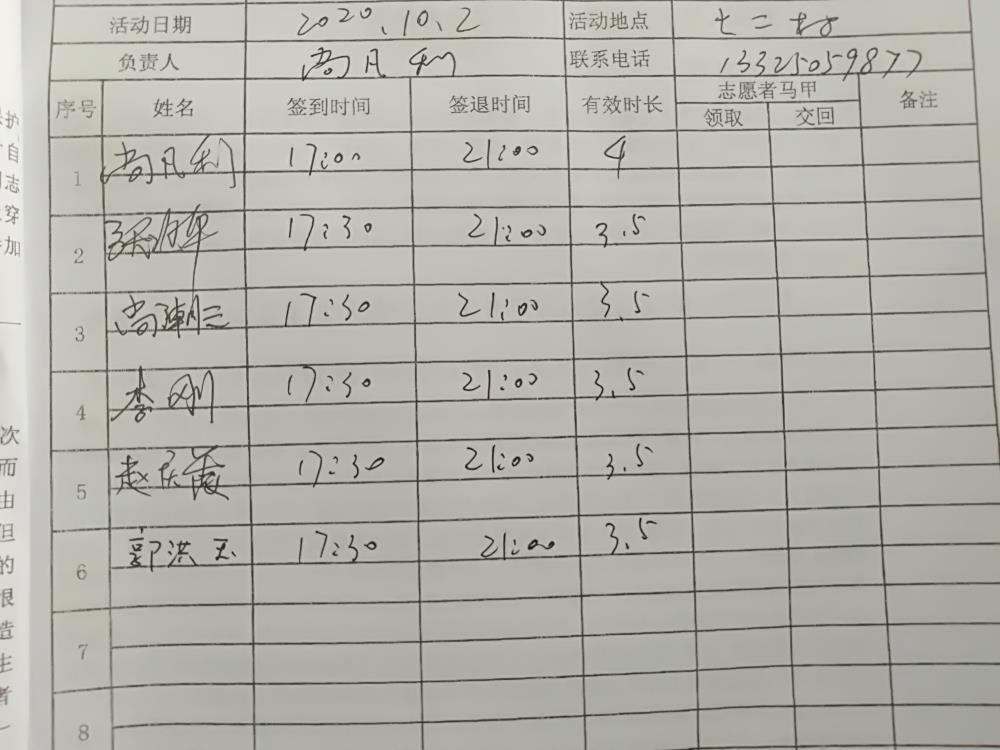 活动日期 2020.10.2 活动地点
负责人 尚凡利 联系电话 13325059877
序号 姓名 签到时间 签退时间 有效时长 志愿者马甲 备注
领取 交回
1 尚凡利 17:00 21:00 4
2 17:30 21:00 3.5
3 尚潮三 17:30 21:00 3.5
4 李刚 17:30 21:00 3.5
5 赵庆霞 17:30 21:00 3.5
6 郭洪玉 17:30 21:00 3.5
7
8
护
自
志
穿
加
次
而
由
但
的
很
造
生
者